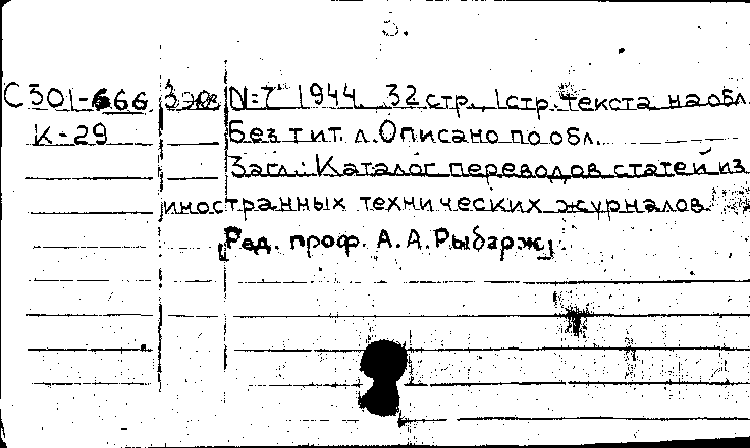 3.
С301-666 3 экз N=7 1944. 32 стр., 1 стр. текста на обл
К-29 Без тит. л. Описано по обл.
Загл.: Каталог переводов статей из
иностранных технических журналов.
[Ред. проф. А. А. Рыбарж].